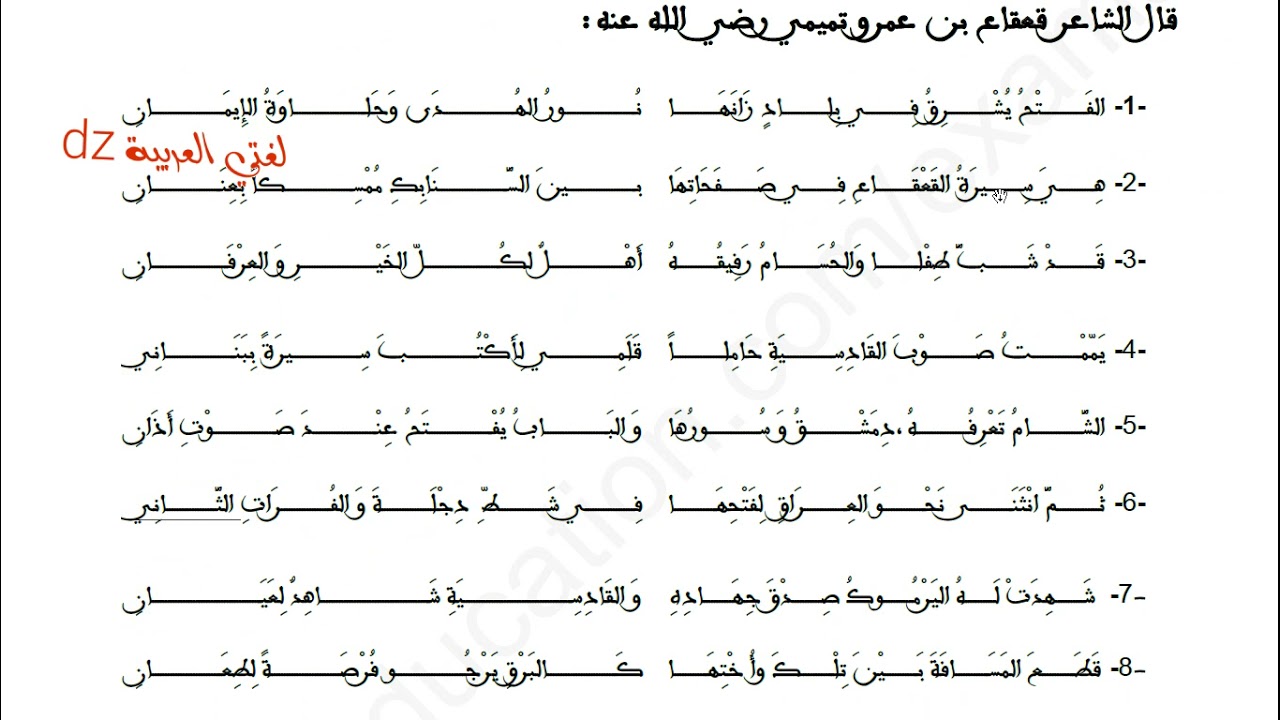 قال الشاعر قعقاع بن عمرو تميمي رضي الله عنه :
-1- الفَتْحُ يُشْرِقُ فِي بِلادٍ زَانَهَا نُورُ الهُدَى وَحَلاوَةُ الإِيمَانِ
لغتي العربية dz
-2- هِيَ سِيرَةُ القَعْقَاعِ فِي صَفَحَاتِهَا بينَ السَّنَابِكِ مُمْسِكاً بِعِنَانِ
-3- قَدْ شَبَّ طِفْلا وَالحُسَامُ رَفِيقُهُ أَهْلٌ لكُلِّ الخَيْرِ وَالعِرْفَانِ
-4- يَمَّمْتُ صَوْبَ القَادِسِيَةِ حَامِلاً قَلَمِي لِأَكْتُبَ سِيرَةً بِبَنَانِي
-5- الشَّامُ تَعْرِفُهُ ،دِمَشْقُ وَسُورُهَا وَالبَابُ يُفْتَحُ عِنْدَ صَوْتِ أَذَانِ
-6- ثُمَّ انْثَنَى نَحْوَ العِرَاقِ لِفَتْحِهَا فِي شَطِّ دِجْلَةَ وَالفُرَاتِ الثَّانِي
-7- شَهِدَتْ لَهُ اليَرْمُوكُ صِدْقَ جِهَادِهِ وَالقَادِسِيَةِ شَاهِدٌ لِعَيَانِ
-8- قَطَعَ المَسَافَةَ بَيْنَ تِلْكَ وَأُخْتِهَا كَالبَرْقِ يَرْجُو فُرْصَةً لِطِعَانِ
ducation.com/exam